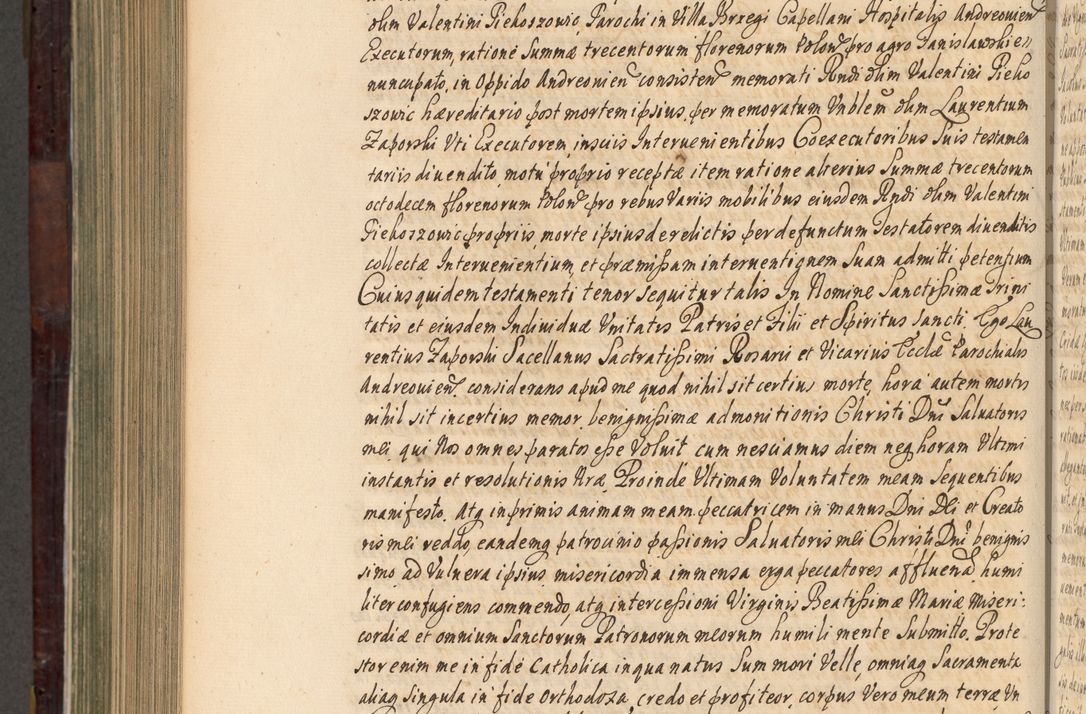 olim Valentini Piekoszowic, Parochi in Villa Brzegi Capellani Hospitalis Andreouien
Executorum, ratione Summæ trecentorum florenorum Polon pro agro Janislawski
nuncupato, in Oppido Andreouien consisten memorati Rndi olim Valentini Pieko
szowic hæreditario post mortem ipsius, per memoratum Vnblem olim Laurentium
Zaporski Vti Executorem, insciis Interuenientibus Coexecutoribus Suis testamen
tariis diuendito, motu proprio receptæ item ratione alterius Summæ trecentorum
octodecem florenorum Polon pro rebus Variis mobilibus eiusdem Rndi olim Valentini
Piekoszowic propriis, morte ipsius derelictis per defunctum Testatorem diuenditis
collectæ Interuenientium, et præmissam interuentionem Suam admitti petentium
Cuius quidem testamenti tenor sequitur talis In Nomine Sanctissimæ Trini
tatis et eiusdem Indiuiduæ Vnitatis Patris et Filii et Spiritus Sancti. Ego Lau
rentius Zaporski Sacellanus Sactratissimi Rosarii et Vicarius Ecclæ Parochialis
Andreouien. considerans apud me quod nihil sit certius morte, hora autem mortis
nihil sit incertius memor benignissimæ admonitionis Christi Dni Saluatoris
mei, qui Nos omnes paratos esse Voluit cum nesciamus diem neq horam Vltimi
instantis et resolutionis Nræ, Proinde Vltimam Voluntatem meam Sequentibus
manifesto. Atq inprimis animam meam peccatricem in manus Dni Dei et Creato
ris mei reddo, eandemq patrocinio passionis Saluatoris mei Christi Dni benignis
simo, ad Vulnera ipsius, misericordia immensa erga peccatores affluena, humi
liter confugiens commendo, atq intercessioni Virginis Beatissimæ Mariæ Miseri:
cordiæ et omnium Sanctorum Patronorum meorum humili mente Submitto. Prote
stor enim me in fide Catholica in qua natus Sum mori Velle, omniaq Sacramenta
aliaq singula in fide orthodoxa, credo et profiteor, corpus Vero meum terræ Vn